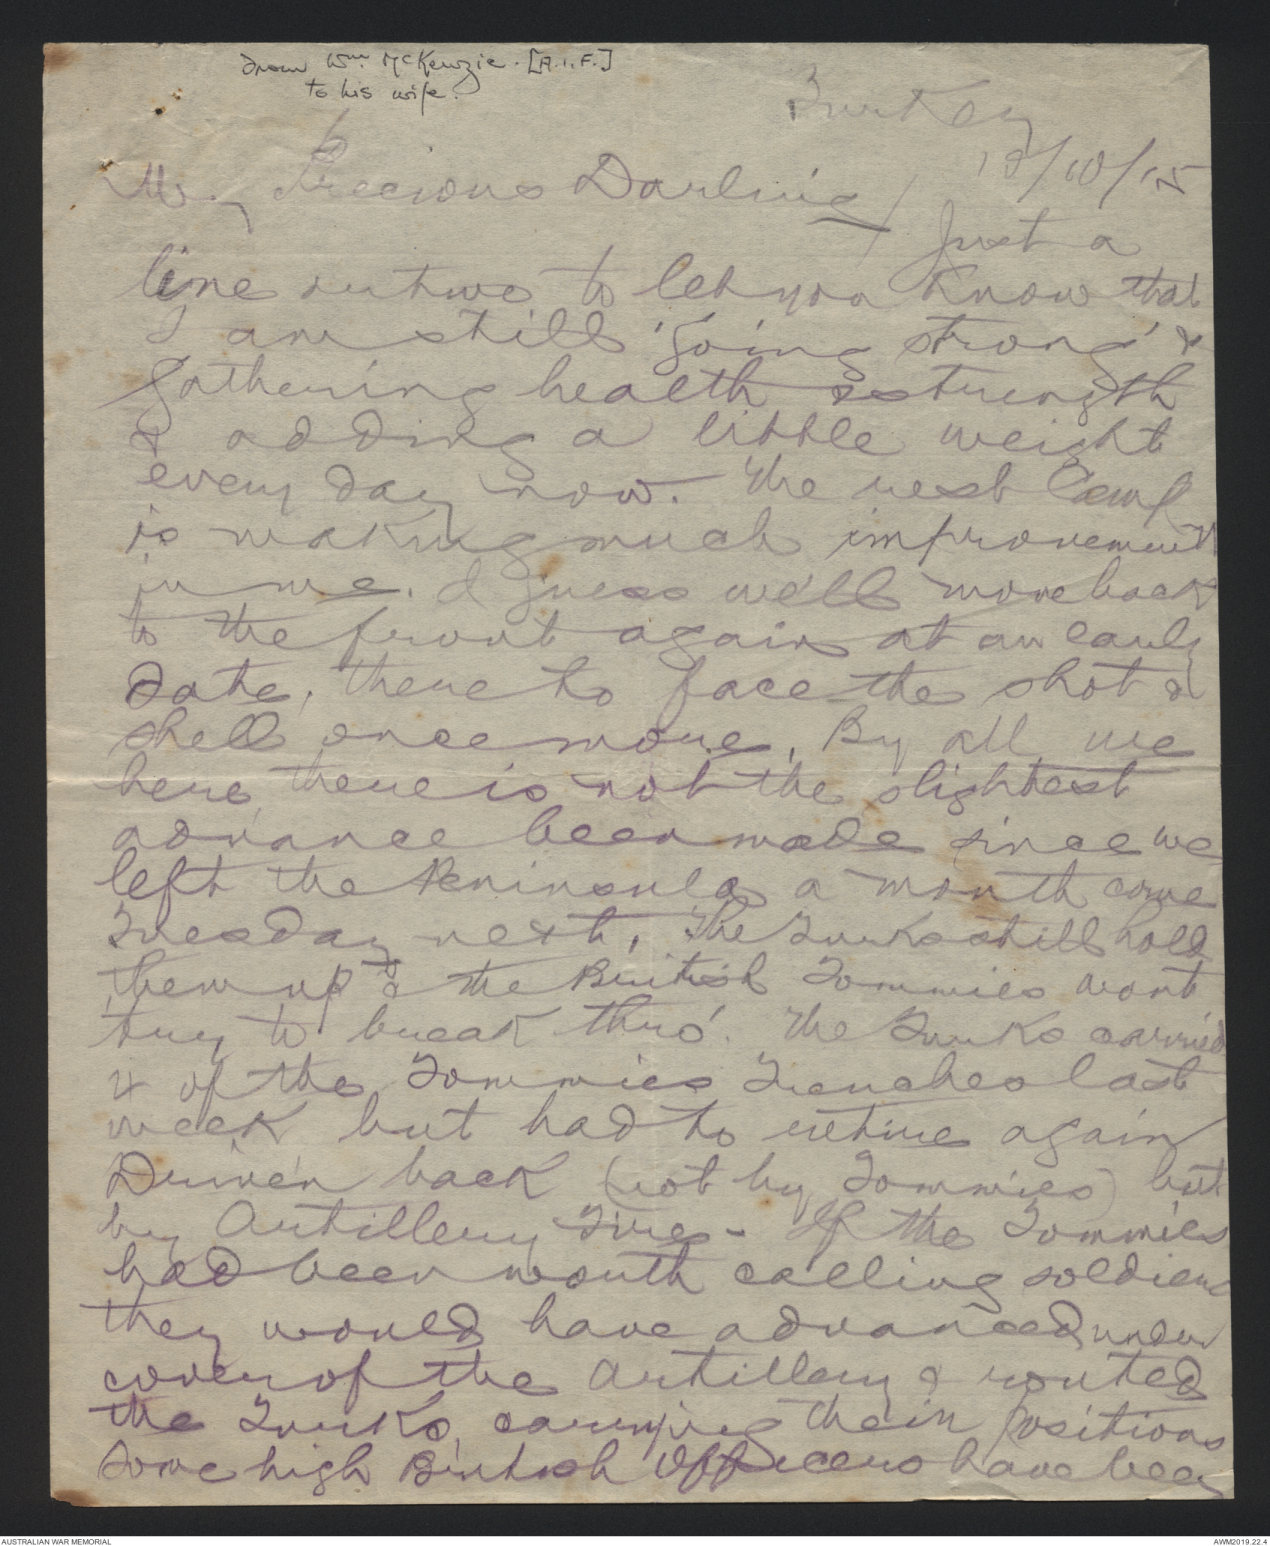 from Wm McKenzie. [A.I.F.]
to his wife.
Turkey
/10/15
My Precious Darling/
Just a
line or two to let you know that
I am still 'going strong' &
gathering health & strength
& adding a little weight
every day now. The rest Camp
is making much improvement
in me. I guess we'll move back
to the front again at an early
date, there to face the shot &
shell once more. By all we
here, there is not the slightest
advance been made since we
left the Peninsula a month come
Tuesday next. The Turks still hold
them up & the British Tommies wont
try to break thro'. The Turks carried
4 of the Tommies Trenches last
week but had to retire again
Driven back (not by Tommies) but
by Artillery Fire - If the Tommies
had been worth calling soldiers
they would have advanced under
cover of the Artillery & routed
the Turks, carrying their positions
Some high British Officers have been
AUSTRALIAN WAR MEMORIAL
AWM2019.22.4